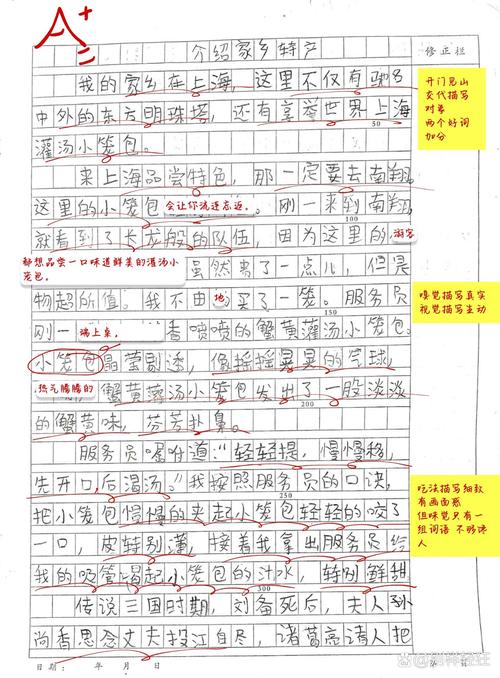 A+
介绍家乡特产
修正栏
我的家乡在上海，这里不仅有驰名
中外的东方明珠塔，还有享举世界上海
50
灌汤小笼包。
开门见山
交代描写
对象
两个好词
加分
来上海品尝特色，那一定要去南翔，
这里的小笼包会让你流连忘返。刚一来到南翔
就看到了长龙般的队伍，因为这里的游客
都想品尝一口味道鲜美的灌汤小
笼包。
虽然贵了一点儿，但是
物超所值。我不由地买了一笼。服务员
150
刚一端上桌，香喷喷的蟹黄灌汤小笼包。
嗅觉描写真实
视觉描写生动
小笼包晶莹剔透，像摇摇晃晃的气球，
热气腾腾的蟹黄灌汤小笼包发出了一股淡淡
200
的蟹黄味，芬芳扑鼻。
服务员嘱咐道：“轻轻提，慢慢移，
先开口，后喝汤。”我按照服务员的口诀，
250
把小笼包慢慢的夹起小笼包轻轻的咬了
一口，皮特别薄，接着我拿出服务员给
我的吸管喝起小笼包的汁水，特别鲜甜
300
吃法描写细致
有画面感
但味觉只有一
组词语 不够诱
人
传说三国时期，刘备死后，夫人孙
尚香思念丈夫投江自尽，诸葛亮请人把
日期： 年 月 日